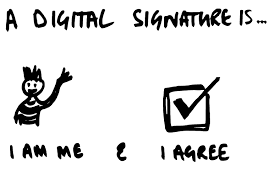 A DIGITAL SIGNATURE IS...
I AM ME & I AGREE